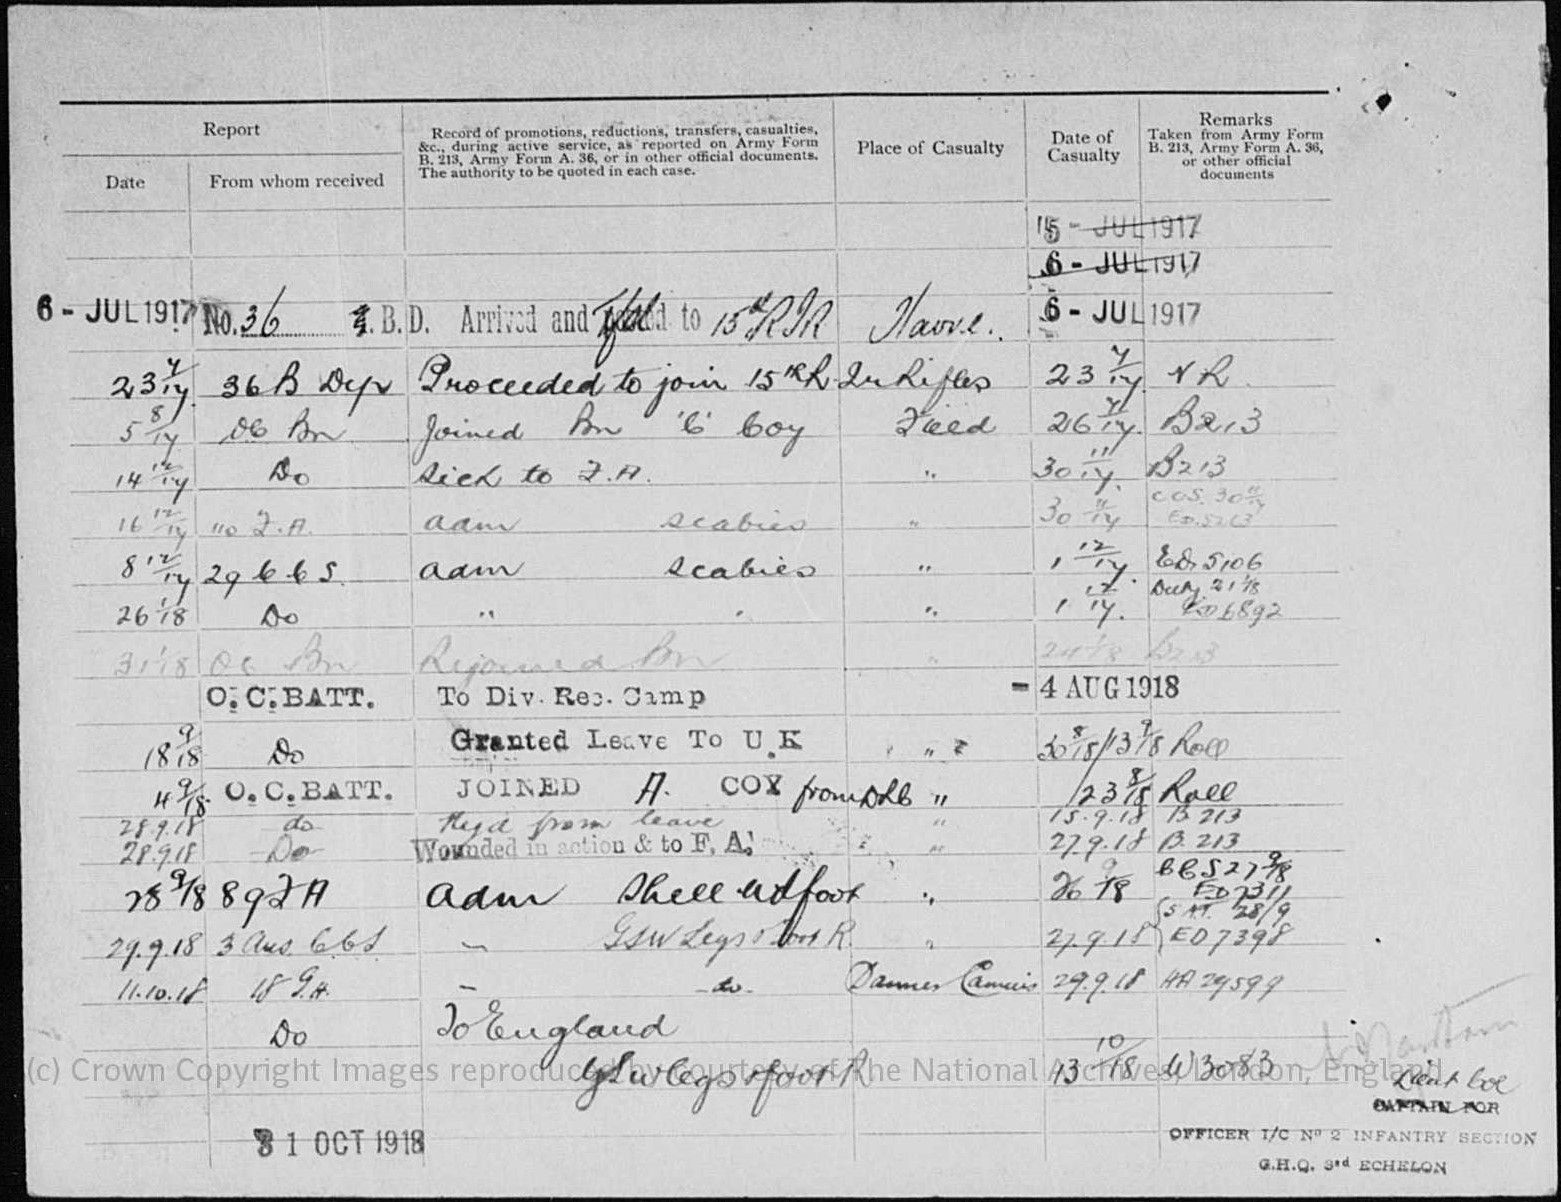 Report
Record of promotions, reductions, transfers, casualties, &c., during active service, as reported on Army Form B. 213, Army Form A. 36, or in other official documents. The authority to be quoted in each case.
Place of Casualty
Date of Casualty
Remarks
Taken from Army Form B. 213, Army Form A. 36, or other official documents
Date
From whom received
5 - JUL 1917
6 - JUL 1917
6 - JUL 1917 No. 36 I.B.D. Arrived and posted to 15th R I R Havre. 6 - JUL 1917
23 7/17 36 B Dep Proceeded to join 15th R Ir Rifles 23 7/17 N R
5 8/17 OC Bn Joined Bn 'C' Coy Field 26 7/17 B213
14 12/17 Do Sick to F.A. " 30 11/17 B213
16 12/17 110 F.A. adm scabies " 30 11/17 CCS. 30 11/17
ED.5263
8 12/17 29 C C S. adm scabies " 1 12/17 ED 5106
26 1/18 Do " " " 1 12/17. Duty 21 1/18
ED 6892
31 1/18 OC Bn Rejoined Bn " 24 1/18 B213
O.C. BATT. To Div. Rec. Camp - 4 AUG 1918
18 9/18 Do Granted Leave To U.K " 30 8/18 / 13 9/18 Roll
4 9/18 O.C. BATT. JOINED A. COY from DRC " 23 8/18 Roll
28.9.18 do Rejd from leave " 15.9.18 B.213
28.9.18 Do Wounded in action & to F.A. " 27.9.18 B.213
28 9/18 89 F A adm Shell wd foot " 26 9/18 CCS 27 9/18
ED 7311
29.9.18 3 Aus. C C S - GSW Legs & foot R. " 27.9.18 28/9
ED 7398
11.10.18 18 G.H. - do - Dannes Camiers 29.9.18 HA 29599
Do To England
GSW legs & foot R 13 10/18 W3083
(c) Crown Copyright Images reproduced by courtesy of The National Archives, London, England
Lieut Col
CAPTAIN FOR
OFFICER I/C No 2 INFANTRY SECTION
G.H.Q. 3rd ECHELON
31 OCT 1918